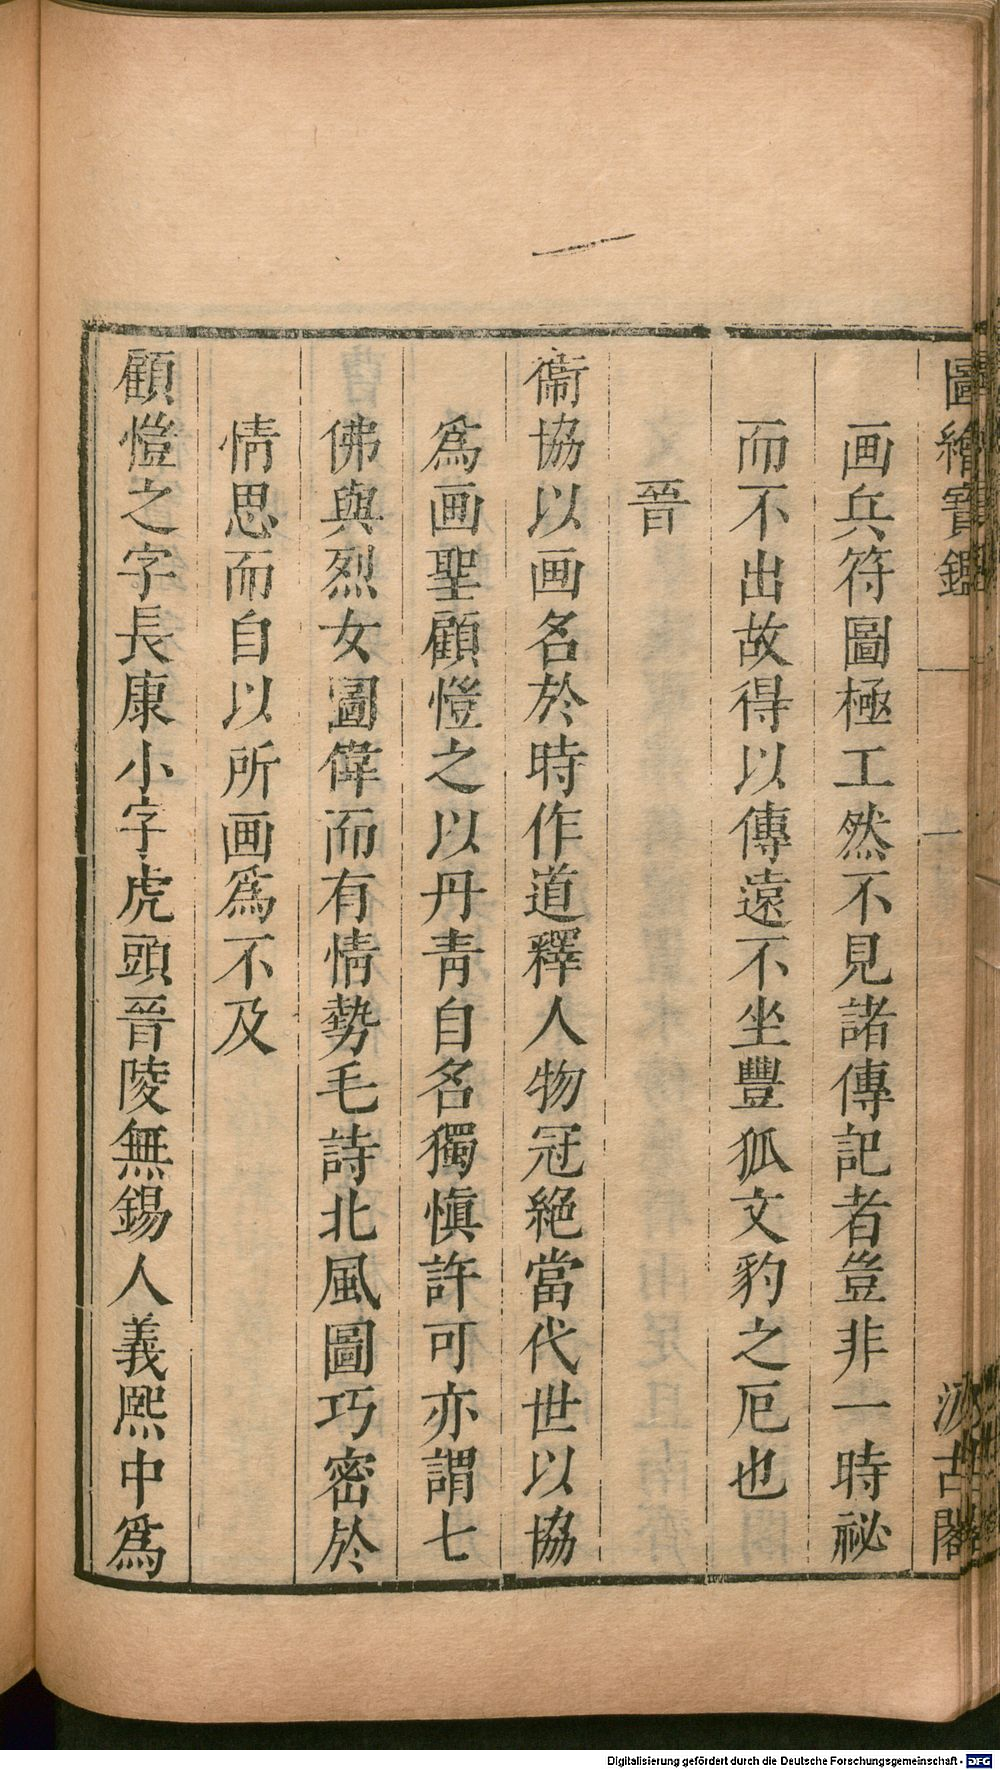 圖繪寶鑑 一 汲古閣
画兵符圖極工然不見諸傳記者豈非一時祕
而不出故得以傳遠不坐豐狐文豹之厄也
晉
衞協以画名於時作道釋人物冠絶當代世以協
爲画聖顧愷之以丹青自名獨慎許可亦謂七
佛與烈女圖偉而有情勢毛詩北風圖巧密於
情思而自以所画爲不及
顧愷之字長康小字虎頭晉陵無錫人義熙中爲
Digitalisierung gefördert durch die Deutsche Forschungsgemeinschaft - DFG